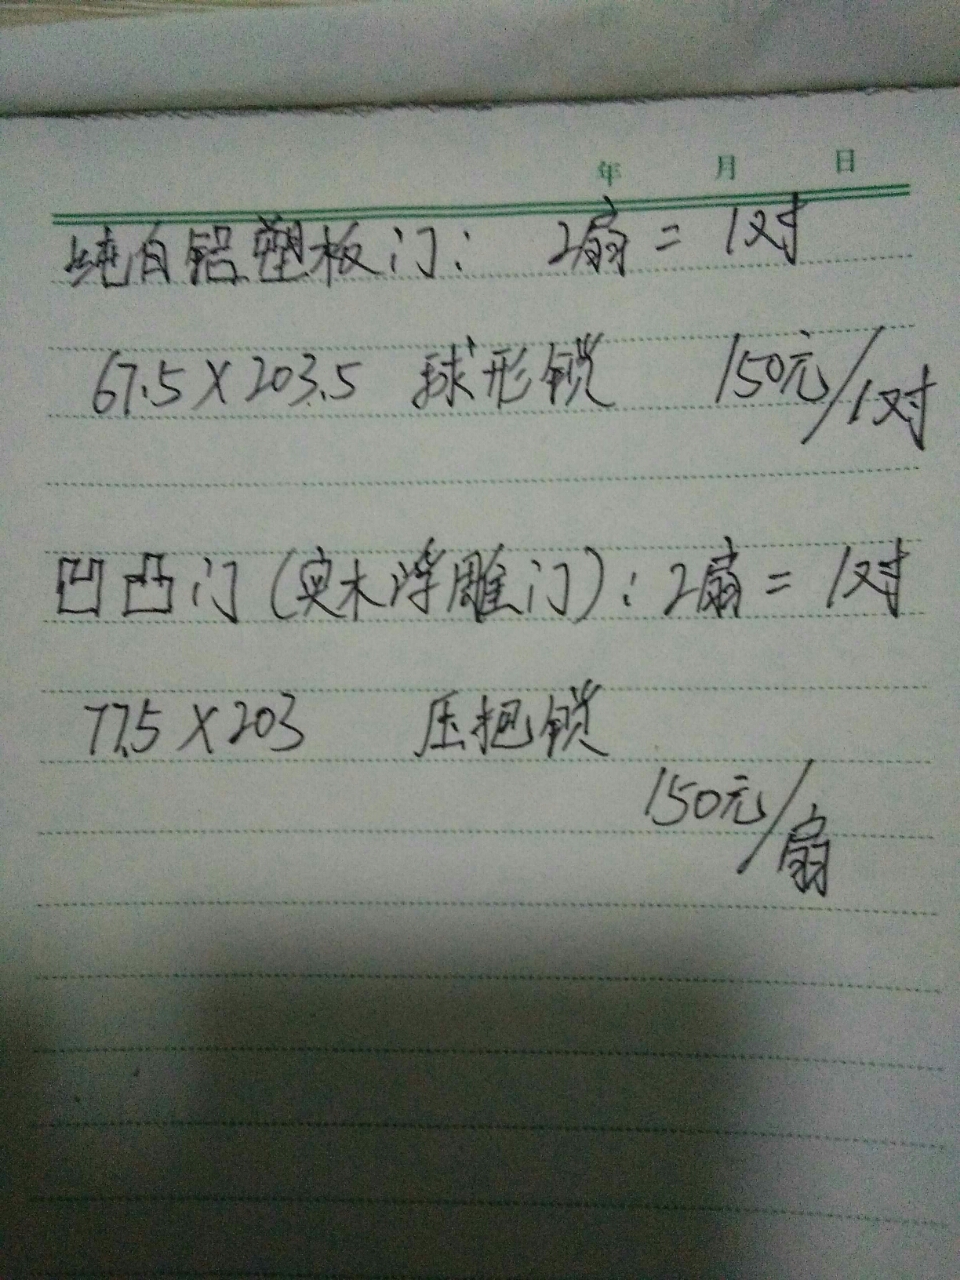 年 月 日
纯白铝塑板门： 2扇 = 1对
67.5×203.5 球形锁 150元/1对
凹凸门（实木浮雕门）：2扇 = 1对
77.5×203 压把锁
150元/扇